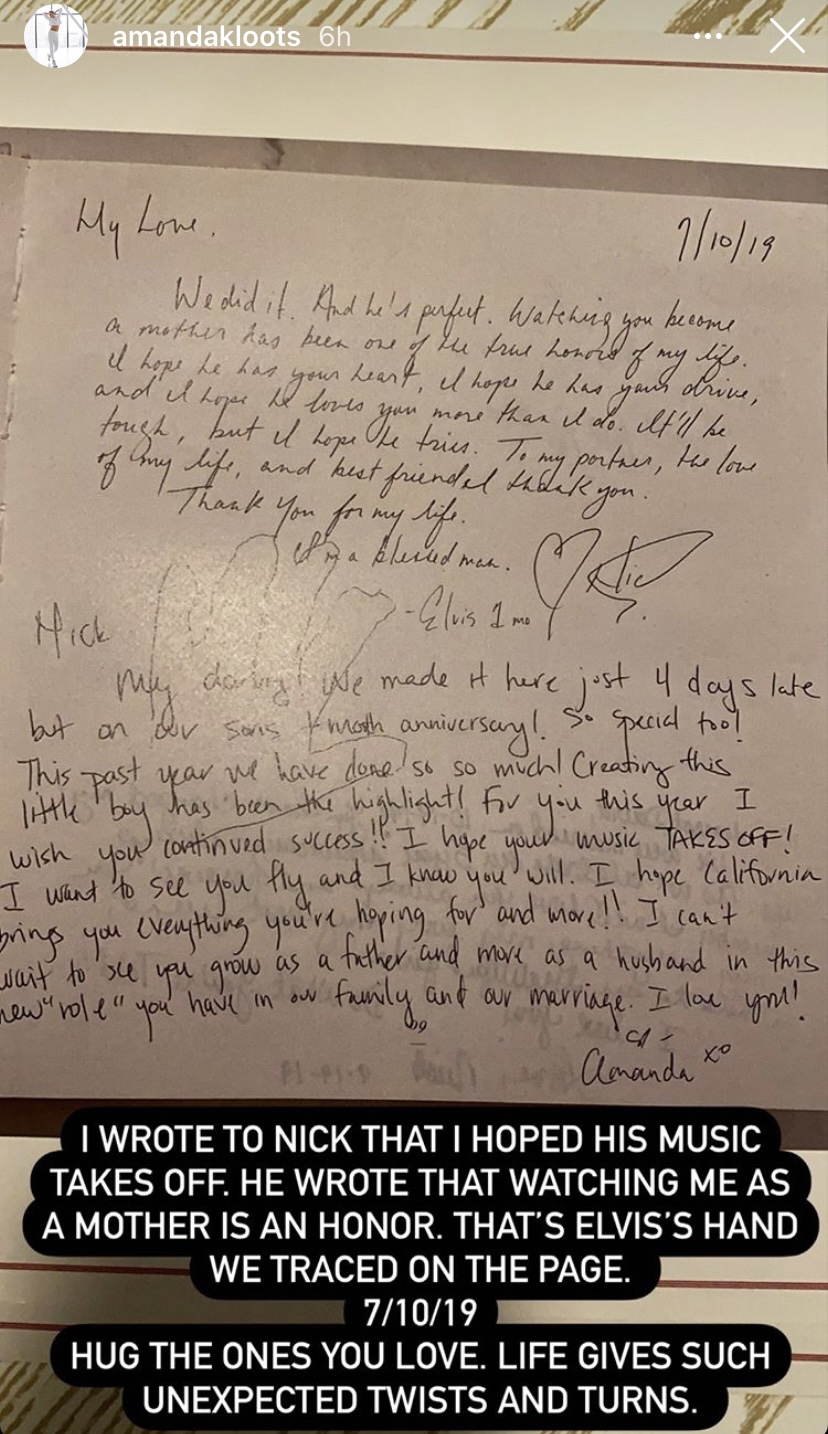 amandakloots 6h
My Love,
7/10/19
We did it. And he's perfect. Watching you become
a mother has been one of the true honors of my life.
I hope he has your heart, I hope he has your drive,
and I hope he loves you more than I do. It'll be
tough, but I hope he tries. To my partner, the love
of my life, and best friend thank you.
Thank you for my life.
I'm a blessed man.
Nic
- Elvis 1 mo
Nick
My darling! We made it here just 4 days late
but on our sons 1 month anniversary! So special too!
This past year we have done so so much! Creating this
little boy has been the highlight! For you this year I
wish you continued success!! I hope your music TAKES OFF!
I want to see you fly and I know you will. I hope California
brings you everything you're hoping for and more!! I can't
wait to see you grow as a father and more as a husband in this
new "role" you have in our family and our marriage. I love you!
Amanda xo
I WROTE TO NICK THAT I HOPED HIS MUSIC
TAKES OFF. HE WROTE THAT WATCHING ME AS
A MOTHER IS AN HONOR. THAT'S ELVIS'S HAND
WE TRACED ON THE PAGE.
7/10/19
HUG THE ONES YOU LOVE. LIFE GIVES SUCH
UNEXPECTED TWISTS AND TURNS.